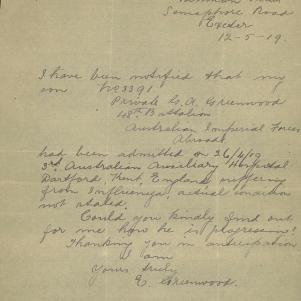 Semaphore Road
Exeter
12-5-19.
I have been notified that my
son No 3391.
Private G. A. Greenwood
48th Battalion
Australian Imperial Forces
Abroad
had been admitted on 26/4/19
3rd Australian Auxiliary Hospital
Dartford, Kent, England suffering
from Influenza, actual condition
not stated.
Could you kindly find out
for me how he is progressing?
Thanking you in anticipation
I am
Yours truly
E. Greenwood.